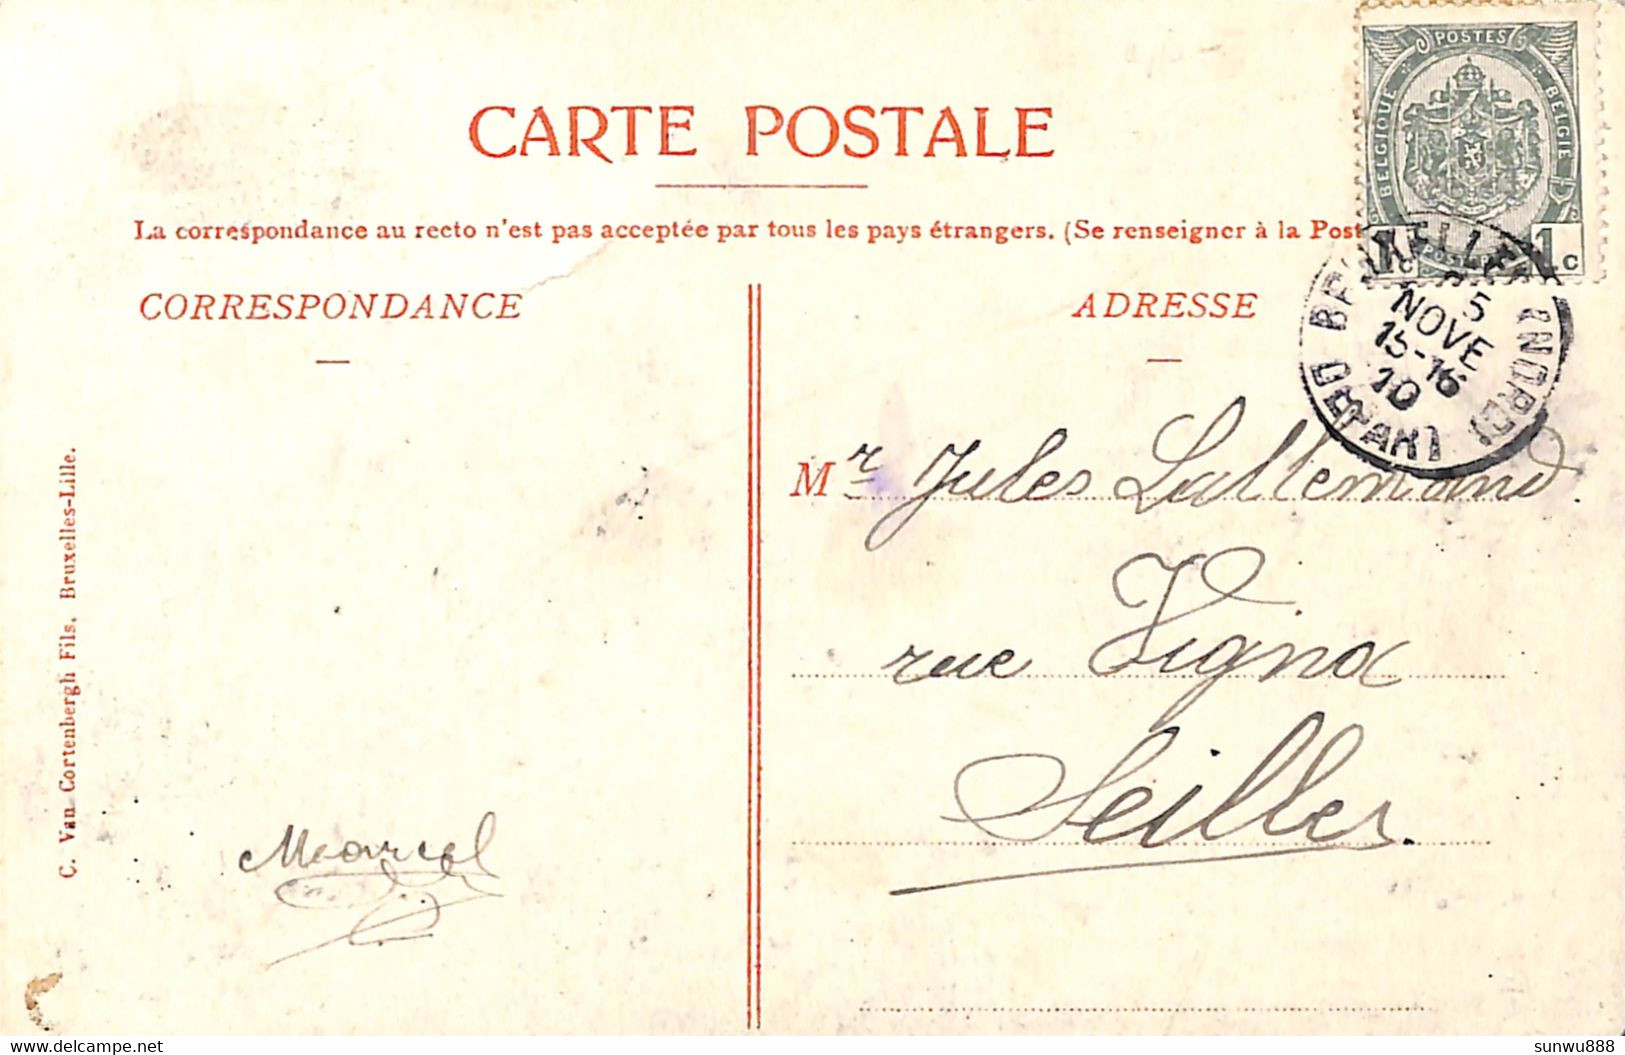 POSTES
BELGIQUE
BELGIE
1 C
CARTE POSTALE
La correspondance au recto n'est pas acceptée par tous les pays étrangers. (Se renseigner à la Post
CORRESPONDANCE
ADRESSE
BRUXELLES (NORD)
5
NOVE
15-16
10
DEPART
Mr Jules Lallemand
rue Vigna
Seilles.
Marcel
C. Van Cortenbergh Fils, Bruxelles-Lille.
delcampe.net
sunwu888